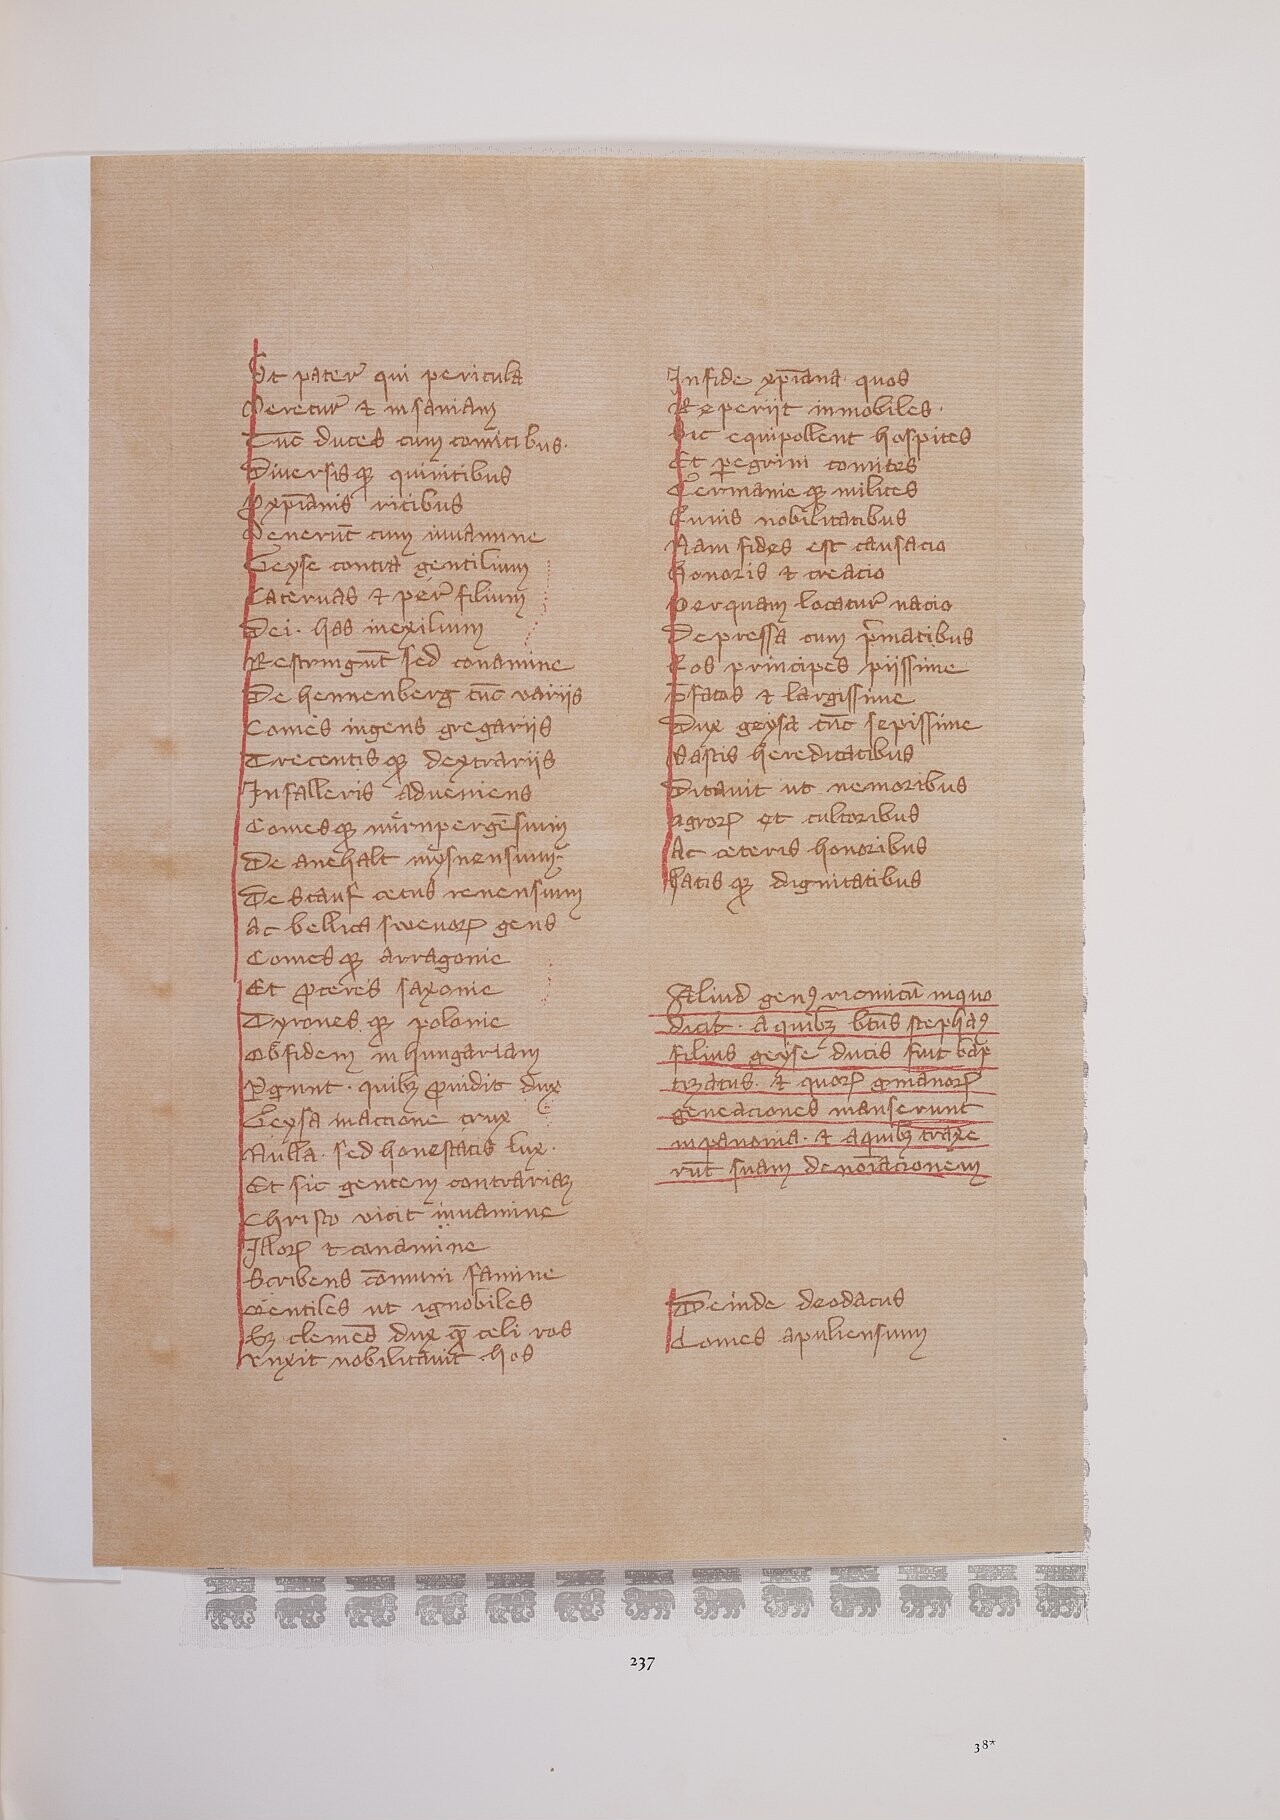 Ut pater̉ qui pericula
Veretur̉ ⁊ insaniam
Tūc duces cum comitibus.
Diversisqꝫ quiritibus
Et xp̄ianis ritibus
Venerūt cum iuuamine
Geyse contra gentilium
Catervas ⁊ per̉ filium
Dei. has inexilium
Restringūt sed conamine
De hennenberg tūc variis
Comes ingens gregariis
Trecentisqꝫ dextrariis
Infalleris adveniens
Comesqꝫ nurnpergēsium
De anehalt mysnensium
De stauf cetus renensium
Ac bellica swevoꝝ gens
Comesqꝫ arragonie
Et ꝓceres saxonie
Tyrones qꝫ polonie
Obfidem in hungariam
quibꝫ ꝓuidit dux
Geysa inaccione trux
Nulla. sed honestatis lux.
Et sic gentem contrariam
Christo vicit iuuamine
Illoꝝ ⁊ conamine
Scribens cōmuni famine
Gentiles ut ignobiles
clemēs dux celi ros
nobilitauit hos
Infide xp̄iana quos
Reperiit inmobiles.
Hic equipollent hospites
Et peregrini comites
Germanieqꝫ milites
Cunis nobilitatibus
Nam fides est causacio
Honoris ⁊ creacio
Perquam locatur̉ nacio
Depressa cum p̉matibus
Eos principes piissime
p̄fatos ⁊ largissime
Dux geysa tūc sepissime
Vastis hereditatibus
Ditauit ut nemoribus
Agroꝝ et cultoribus
Ac ceteris honoribus
Latis qꝫ dignitatibus
Aliud genꝰ ricmicū inquo
dicit. a quibꝫ bt̄us stephāꝰ
filius geyse ducis fuit bap
tizatus. ⁊ quoꝝ gmanoꝝ
geneaciones manserunt
in panonia. ⁊ aquibꝫ traxe
rūt suam denoiacionem
Deinde deodatus
Comes apuliensium
237
38*